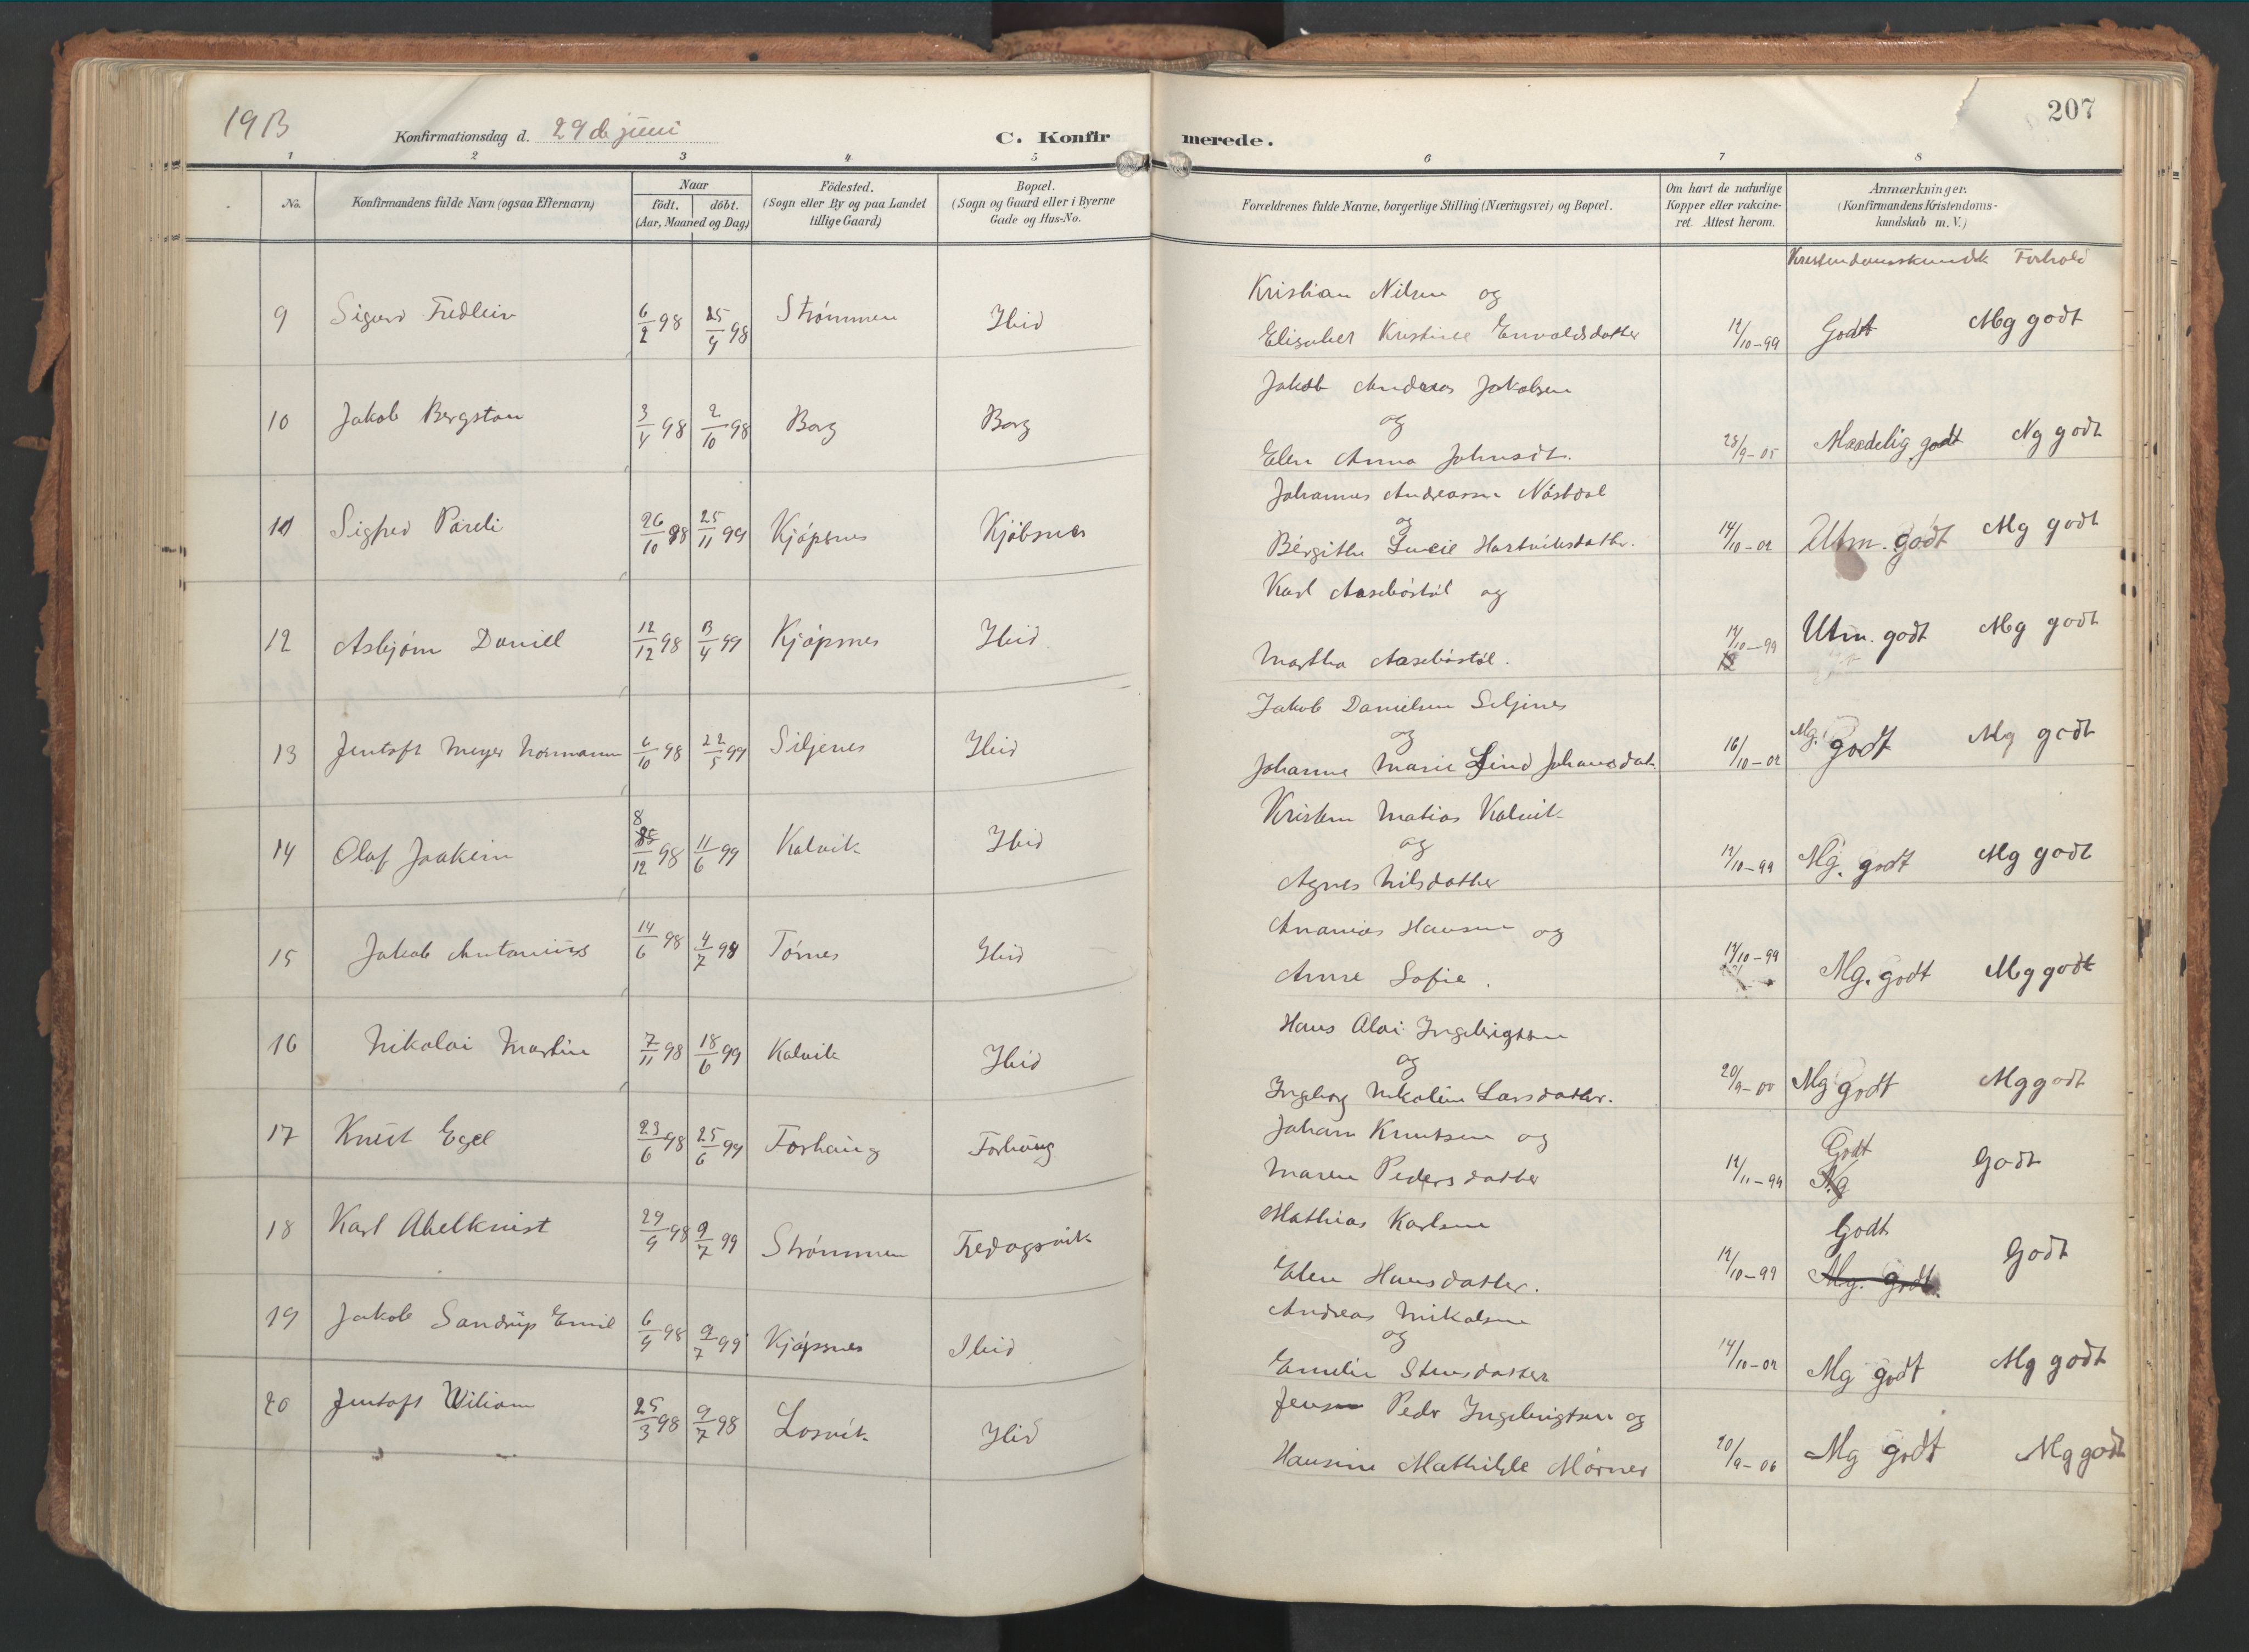 1913
Konfirmationsdag d. 29de juni
C. Konfirmerede.
207
1 2 3 4 5 6 7 8
No.
Konfirmandens fulde Navn (ogsaa Efternavn)
Naar
födt. döbt.
(Aar, Maaned og Dag)
Födested.
(Sogn eller By og paa Landet
tillige Gaard)
Bopæl.
(Sogn og Gaard eller i Byerne
Gade og Hus-No.
Forældrenes fulde Navne, borgerlige Stilling (Næringsvei) og Bopæl.
Om havt de naturlige
Kopper eller vakcine-
ret. Attest herom.
Anmærkninger.
(Konfirmandens Kristendoms-
kundskab m. V.)
Kristendomskundsk Forhold
9 Sigurd Fredleiv 6/2 98 25/4 98 Strømmen Ibid
Kristian Nilsen og
Elisabet Kristine Envoldsdatter 12/10-99 Godt Mg godt
10 Jakob Bergston 3/4 98 2/10 98 Borg Borg
Jakob Andreas Jakobsen
og
Elen Anna Johnsdt. 28/9-05 Maadelig godt Ng godt
11 Sigfred Pareli 26/10 98 25/11 99 Kjöpsnes Kjöbsnes
Johannes Andreassen Nöstdal
og
Bergithe Lucie Hartviksdatter. 14/10-02 Utm. godt Mg godt
12 Asbjörn Daniel 12/12 98 3/4 99 Kjöpsnes Ibid
Karl Aaseböstöl og
Martha Aaseböstöl. 12/10-99 Utm. godt Mg godt
13 Jentoft Meyer Normann 6/10 98 22/5 99 Siljenes Ibid
Jakob Danielsen Siljenes
og
Johanne Marie Lind Johansdat. 16/10-02 Mg. godt Mg godt
14 Olaf Joakim 8/12 98 11/6 99 Kalvik Ibid
Kristen Matias Kalvik
og
Agnes Nilsdatter 12/10-99 Mg. godt Mg godt
15 Jakob Antonius 14/6 98 4/7 98 Tömes Ibid
Ananias Hansen og
Anne Sofie. 12/10-99 Mg. godt Mg godt
16 Nikolai Martin 7/11 98 18/6 99 Kalvik Ibid
Hans Alai Ingebrigtsen
og
Ingeborg Nikoline Larsdatter. 20/9-00 Mg godt Mg godt
17 Knut Egel 23/6 98 25/6 99 Forhaug Forhaug
Johan Knutsen og
Maren Pedersdatter 12/11-99 Godt Ng Godt
18 Karl Abelkvist 29/9 98 9/7 99 Strömmen Fredagsvik
Mathias Karlsen
Elen Hansdatter. 12/10-99 Godt Mg. godt. Godt
19 Jakob Sandrup Emil 6/9 98 9/7 99 Kjöpsnes Ibid
Andreas Nikolsen
og
Emelie Stensdatter 14/10-02 Mg godt Mg godt
20 Jentoft Wiliam 25/3 98 9/7 98 Losvik Ibid
Jens Peder Ingebrigtsen og
Hansine Mathilde Mörner 20/9-06 Mg godt Mg godt